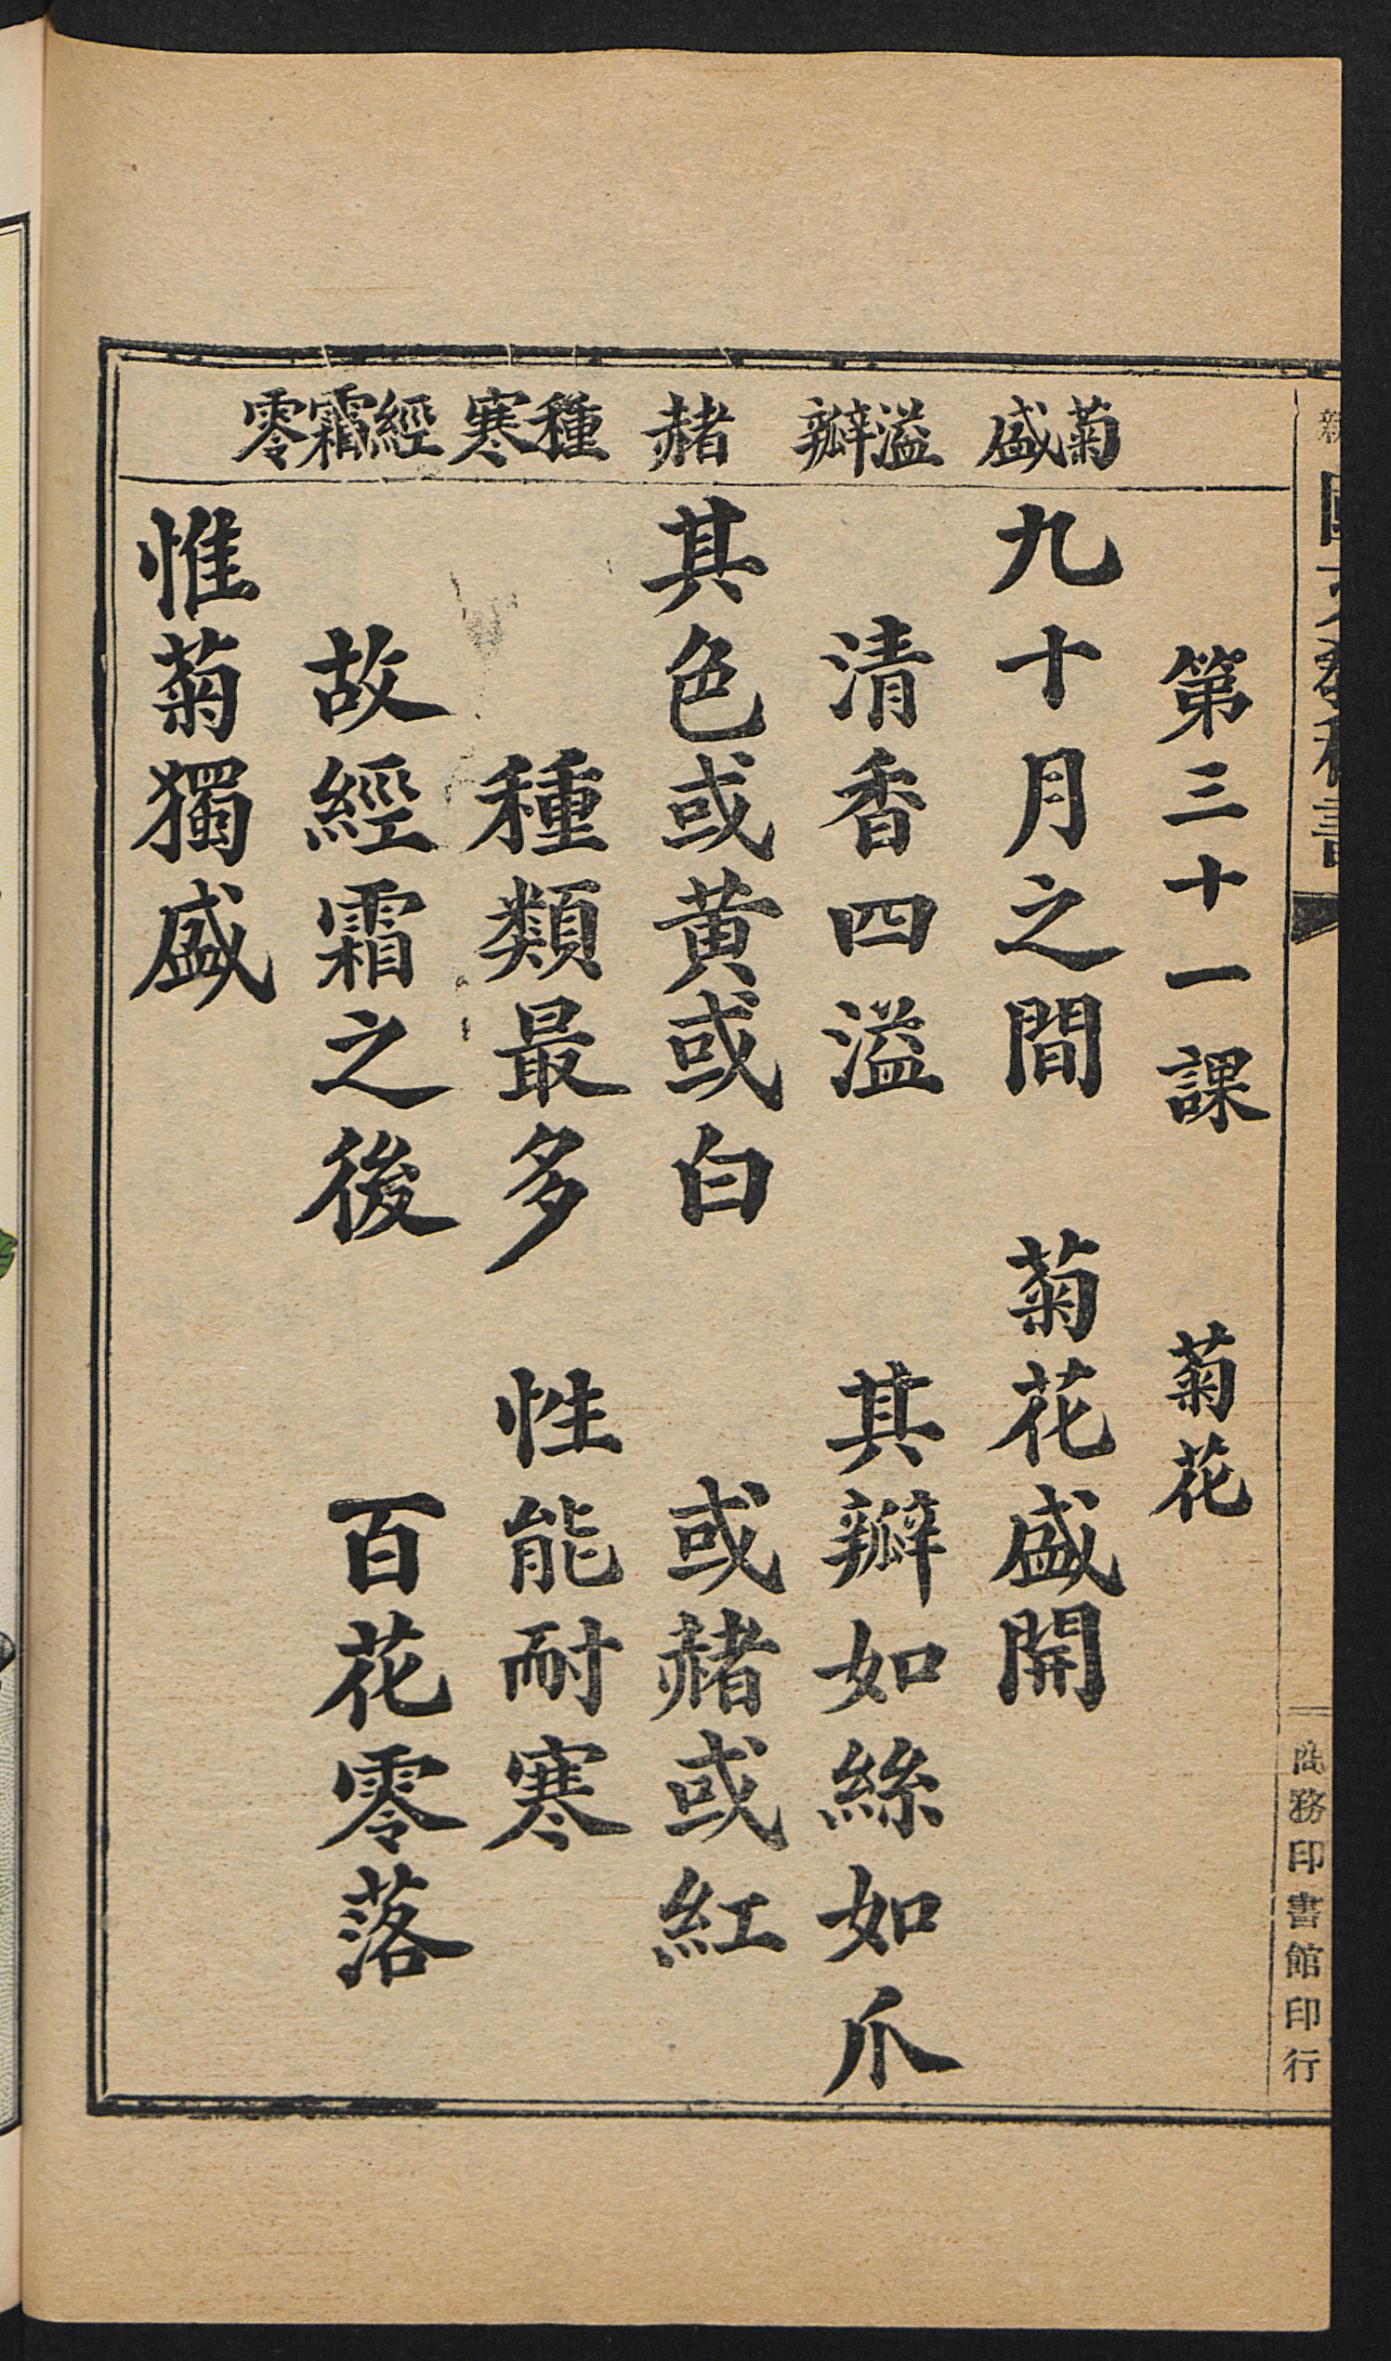 國文教科書
商務印書館印行
第三十一課　菊花
菊盛
九十月之間　菊花盛開
溢瓣
清香四溢　其瓣如絲如爪
赭
其色或黄或白　或赭或紅
種寒
種類最多　性能耐寒
經霜零
故經霜之後　百花零落
惟菊獨盛